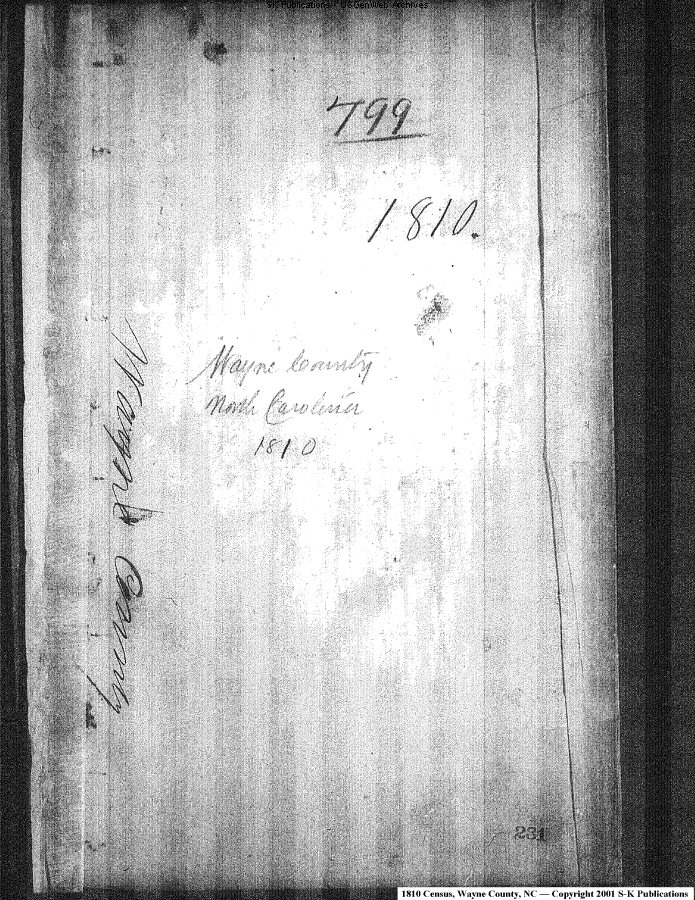 S-K Publications - USGenWeb Archives
799
1810.
Wayne County
North Carolina
1810
231
1810 Census, Wayne County, NC — Copyright 2001 S-K Publications